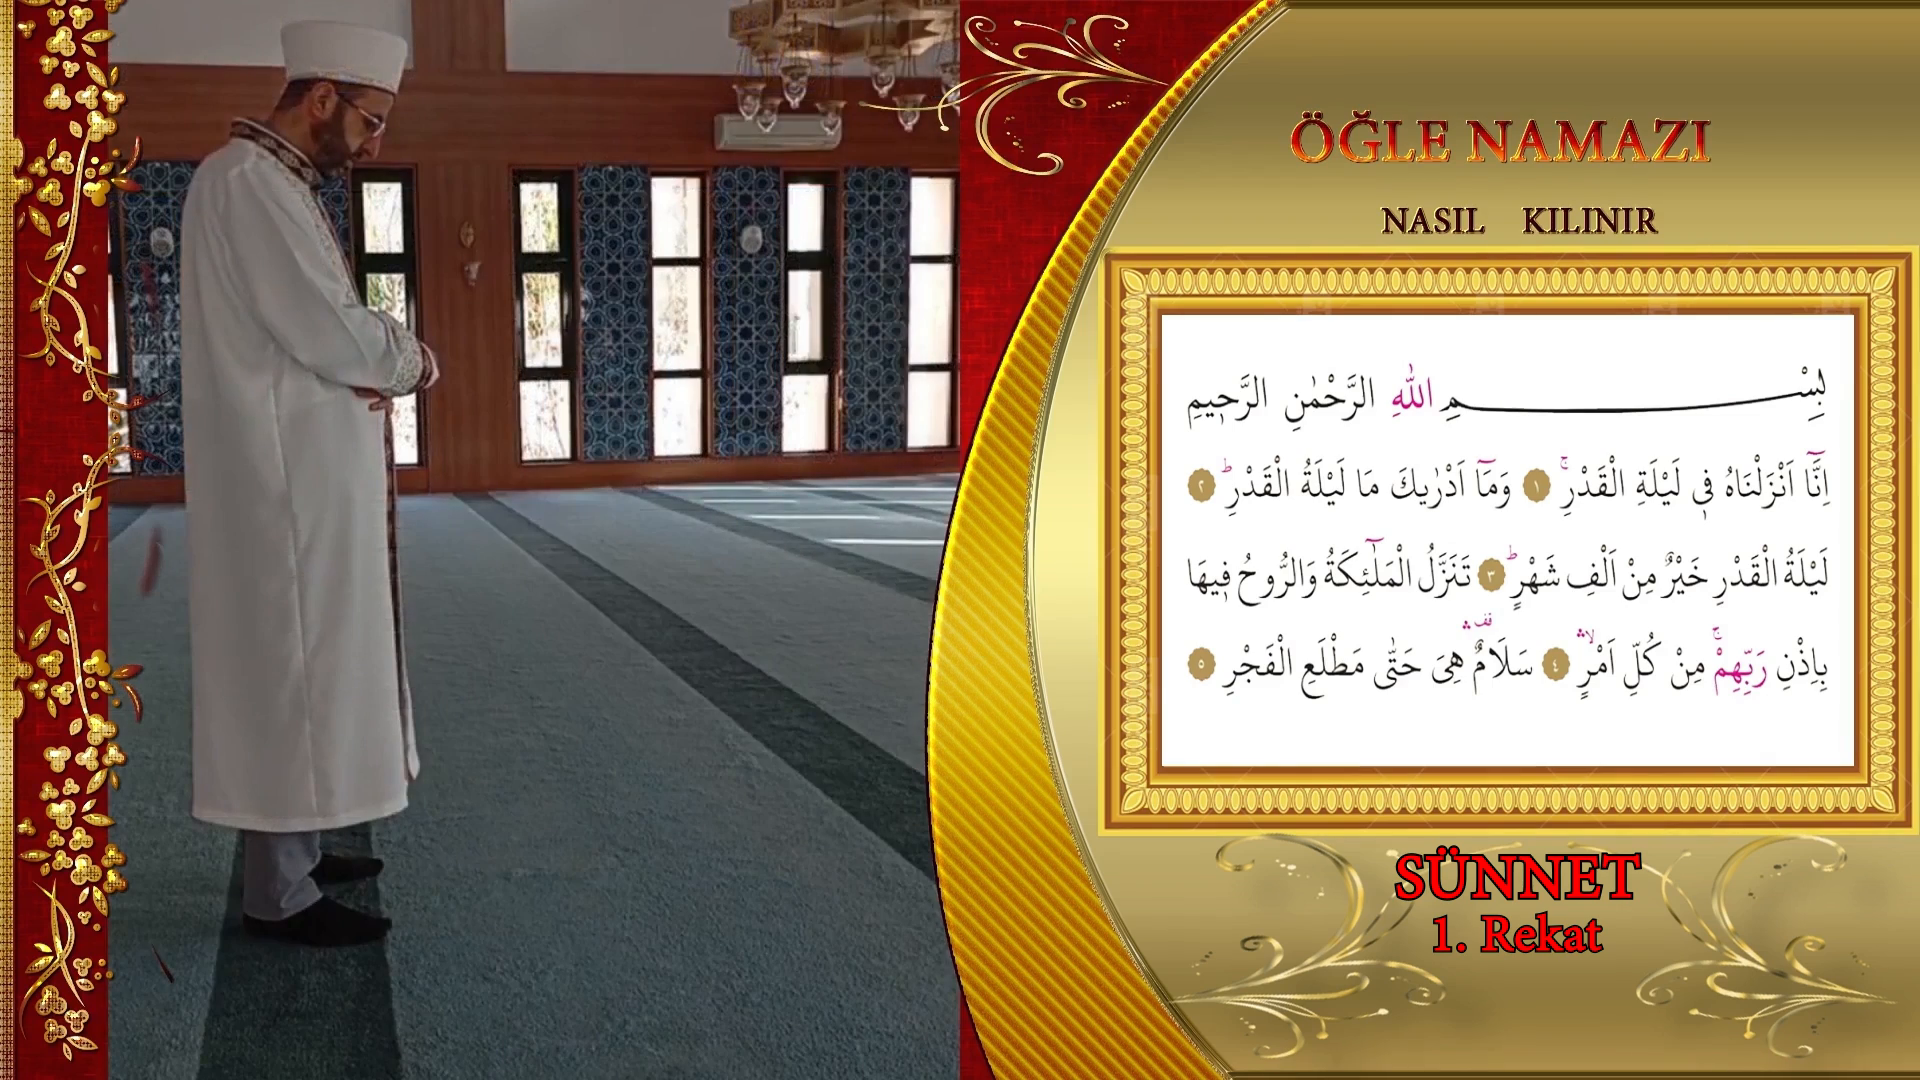 ÖĞLE NAMAZI
NASIL KILINIR
بِسْمِ اللّٰهِ الرَّحْمٰنِ الرَّح۪يمِ
اِنَّٓا اَنْزَلْنَاهُ ف۪ي لَيْلَةِ الْقَدْرِۚ ﴿١﴾ وَمَٓا اَدْرٰيكَ مَا لَيْلَةُ الْقَدْرِۜ ﴿٢﴾
لَيْلَةُ الْقَدْرِ خَيْرٌ مِنْ اَلْفِ شَهْرٍۜ ﴿٣﴾ تَنَزَّلُ الْمَلٰٓئِكَةُ وَالرُّوحُ ف۪يهَا
بِاِذْنِ رَبِّهِمْۚ مِنْ كُلِّ اَمْرٍۙۛ ﴿٤﴾ سَلَامٌ۠ۛ هِيَ حَتّٰى مَطْلَعِ الْفَجْرِ ﴿٥﴾
SÜNNET
1. Rekat